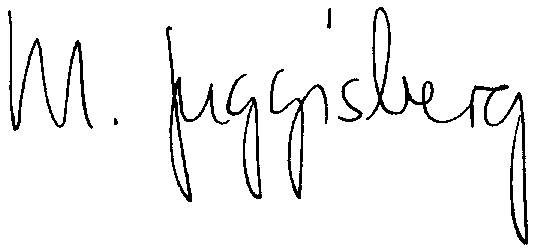 M. Juggisberg